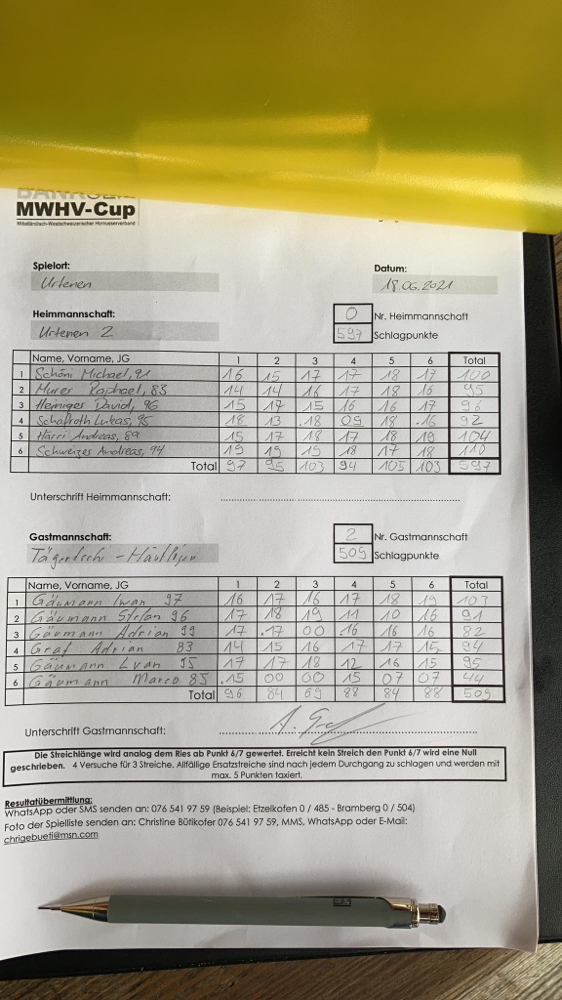 MWHV-Cup
Mittelländisch-Westschweizerischer Hornusserverband
Spielort: Datum:
Urtenen 18.06.2021
Heimmannschaft: 0 Nr. Heimmannschaft
Urtenen 2 597 Schlagpunkte
Name, Vorname, JG 1 2 3 4 5 6 Total
1 Schöni Michael, 91 16 15 17 17 18 17 100
2 Murer Raphael, 83 14 14 16 17 18 16 95
3 Heiniger David, 96 15 17 15 16 16 17 96
4 Schafroth Lukas, 95 18 13 .18 09 18 .16 92
5 Andreas, 89 15 17 18 17 18 19 104
6 Schweizer Andreas, 94 19 19 19 18 17 18 110
Total 97 95 103 94 105 103 597
Unterschrift Heimmannschaft:
Gastmannschaft: 2 Nr. Gastmannschaft
Tägertschi - Häutligen 509 Schlagpunkte
Name, Vorname, JG 1 2 3 4 5 6 Total
1 Gäumann Iwan 97 16 17 16 17 18 19 103
2 Gäumann Stefan 96 17 18 19 11 10 16 91
3 Gäumann Adrian 99 17 .17 00 16 16 16 82
4 Graf Adrian 83 14 15 16 17 17 15 94
5 Gäumann 95 17 17 18 12 16 15 95
6 Gäumann Marco 85 .15 00 00 15 07 07 44
Total 96 84 69 88 84 88 509
Unterschrift Gastmannschaft:
Die Streichlänge wird analog dem Ries ab Punkt 6/7 gewertet. Erreicht kein Streich den Punkt 6/7 wird eine Null
geschrieben. 4 Versuche für 3 Streiche. Allfällige Ersatzstreiche sind nach jedem Durchgang zu schlagen und werden mit
max. 5 Punkten taxiert.
Resultatübermittlung:
WhatsApp oder SMS senden an: 076 541 97 59 (Beispiel: Etzelkofen 0 / 485 - Bramberg 0 / 504)
Foto der Spielliste senden an: Christine Bütikofer 076 541 97 59, MMS, WhatsApp oder E-Mail:
chrigebueti@msn.com